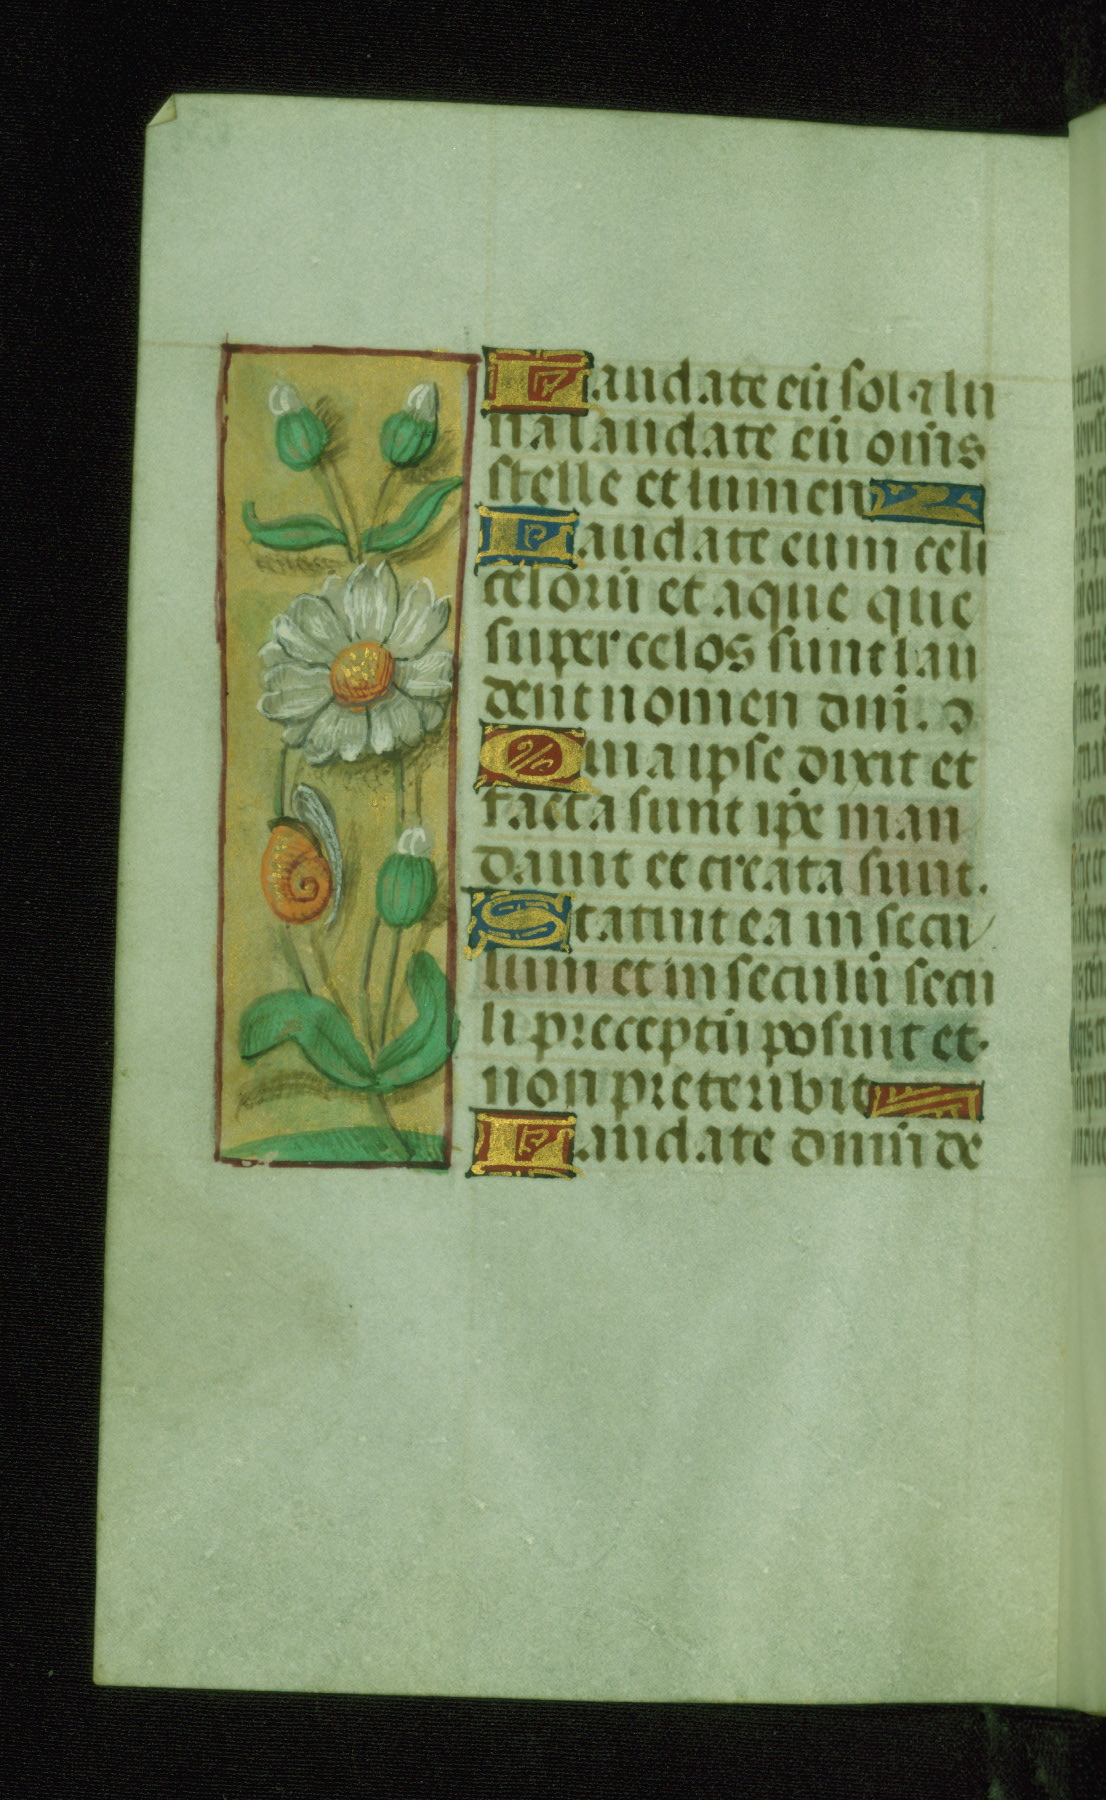 Laudate eū sol ⁊ lu
na laudate eū om̄s
stelle et lumen
Laudate eum celi
celorū et aque que
super celos sunt lau
dent nomen dn̄i. Ꝺ
Quia ipse dixit et
facta sunt ip̄e man
dauit et creata sunt.
Statuit ea in secu
lum et in seculū secu
li preceptū posuit et
non preteribit
Laudate dn̄m de